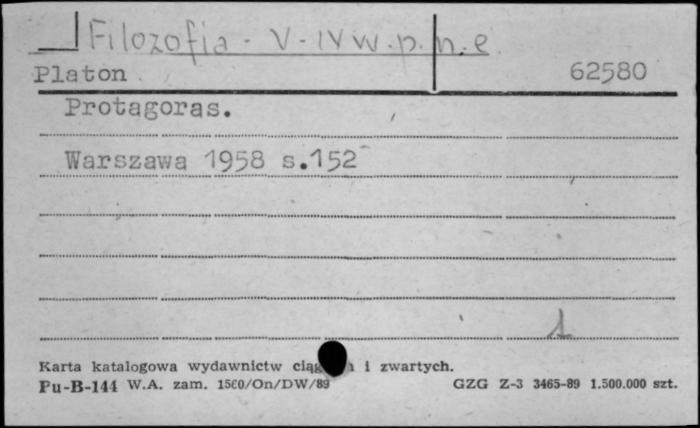 Filozofia - V - IV w. p. n. e.
Platon 62580
Protagoras.
Warszawa 1958 s.152
1
Karta katalogowa wydawnictw i zwartych.
Pu-B-144 W.A. zam. 1500/On/DW/89 GZG Z-3 3465-89 1.500.000 szt.